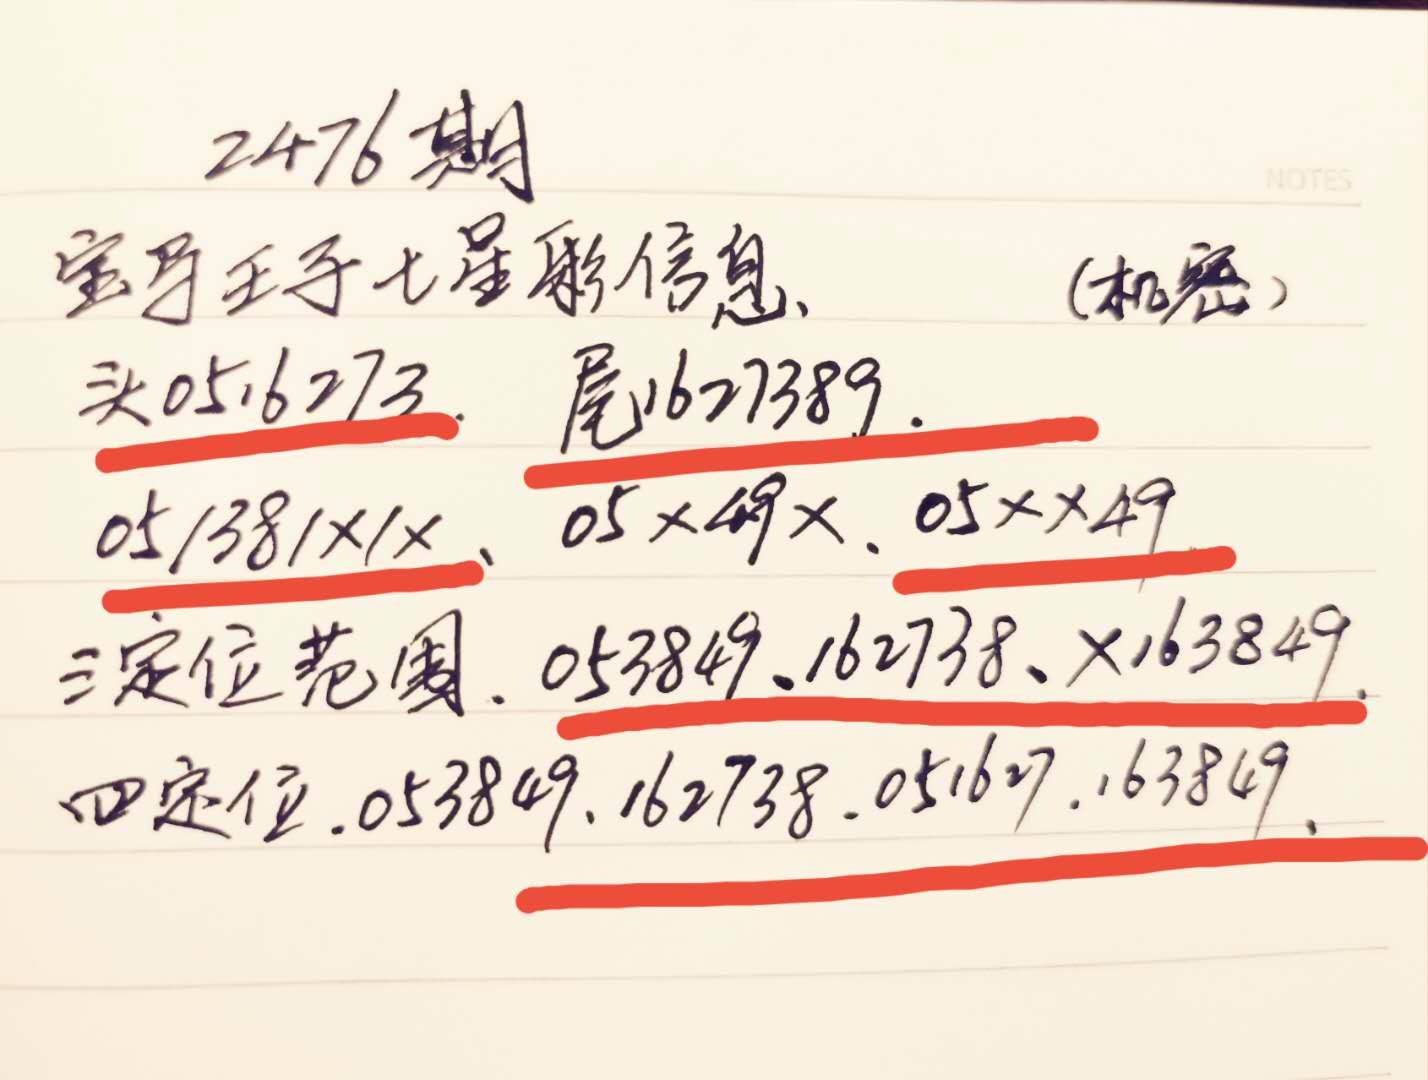 NOTES
2476期
宝马王子七星彩信息、 (机密)
头0516273. 尾1627389.
05/38/X/X、05X49X、05XX49
三定位范围.053849、162738、X163849.
四定位.053849、162738.051627.163849.